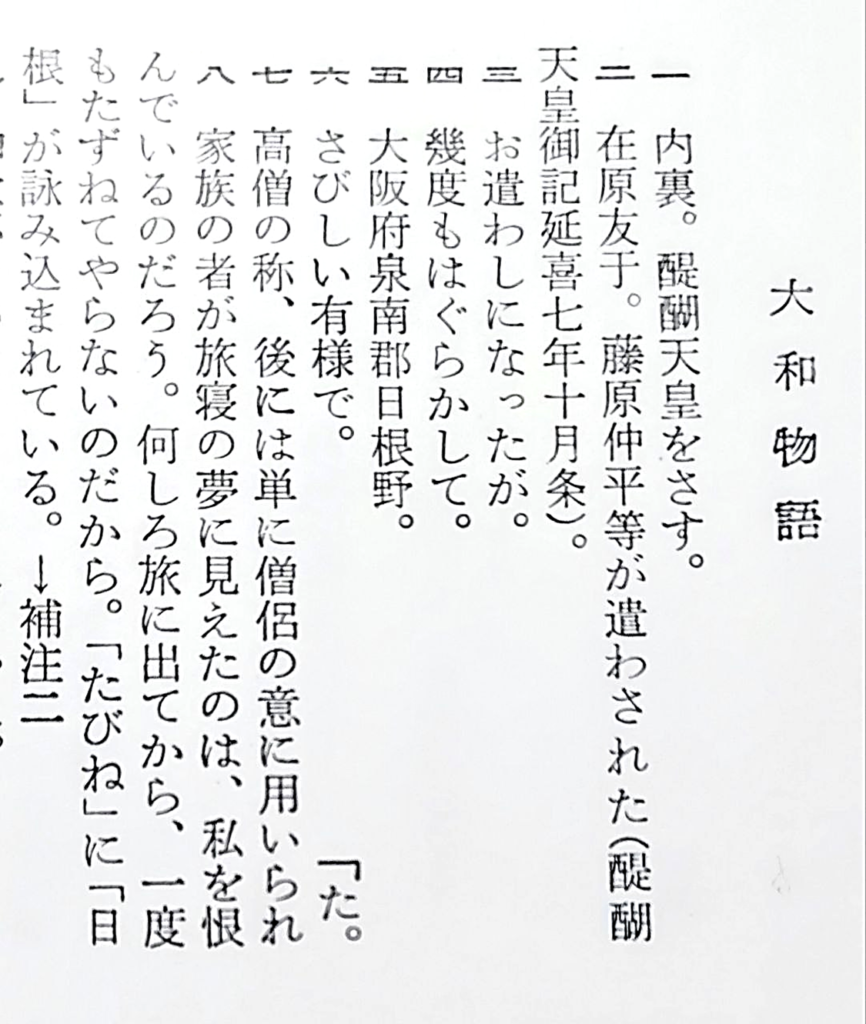 大和物語
一　内裏。醍醐天皇をさす。
二　在原友于。藤原仲平等が遣わされた（醍醐
天皇御記延喜七年十月条）。
三　お遣わしになったが。
四　幾度もはぐらかして。
五　大阪府泉南郡日根野。
六　さびしい有様で。
「た。
七　高僧の称、後には単に僧侶の意に用いられ
八　家族の者が旅寝の夢に見えたのは、私を恨
んでいるのだろう。何しろ旅に出てから、一度
もたずねてやらないのだから。「たびね」に「日
根」が詠み込まれている。↓補注二